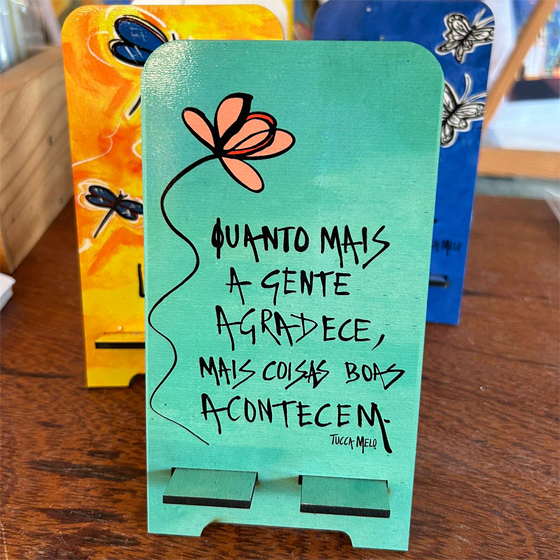 QUANTO MAIS
A GENTE
AGRADECE,
MAIS COISAS BOAS
ACONTECEM.
TUCCA MELO
MELO